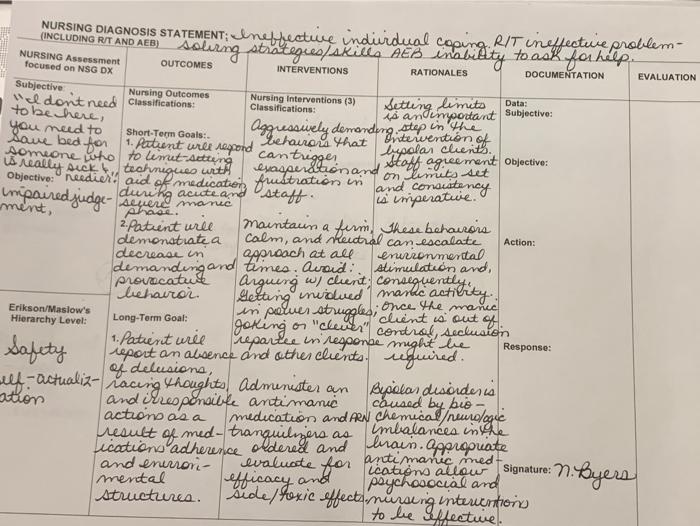 NURSING DIAGNOSIS STATEMENT: Ineffective individual coping R/T ineffective problem-
(INCLUDING R/T AND AEB) solving strategies/skills AEB inability to ask for help.
NURSING Assessment
focused on NSG DX
OUTCOMES
INTERVENTIONS
RATIONALES
DOCUMENTATION
EVALUATION
Subjective:
"I dont need
to be here,
you need to
save bed for
someone who
is really sick &
needier."
Objective:
impaired judge-
ment,
Erikson/Maslow's
Hierarchy Level:
Safety
self-actualiz-
ation
Nursing Outcomes
Classifications:
Short-Term Goals:
1. Patient will respond
to limit-setting
techniques with
aid of medication
during acute and
severe manic
phase.
2. Patient will
demonstrate a
decrease in
demanding and
provocative
behavior.
Long-Term Goal:
1. Patient will
report an absence
of delusions,
racing thoughts,
and irresponsible
actions as a
result of med-
ications adherence
and environ-
mental
structures.
Nursing Interventions (3)
Classifications:
Aggressively demanding
behaviors that
can trigger
exasperation and
frustration in
staff.
maintain a firm,
calm, and neutral
approach at all
times. Avoid:
Arguing w/ client;
Getting involved
in power struggles;
joking or "clever"
repartee in response
and other clients.
Administer an
antimanic
medication and PRN
tranquilizers as
ordered and
evaluate for
efficacy and
side/toxic effects.
Setting limits
is an important
step in the
intervention of
bipolar clients.
Staff agreement
on limits set
and consistency
is imperative.
These behaviors
can escalate
environmental
stimulation and,
consequently,
manic activity.
Once the manic
client is out of
control, seclusion
might be
required.
Bipolar disorder is
caused by bio-
chemical/neurologic
imbalances in the
brain. Appropriate
antimanic med-
ications allow
psychosocial and
nursing interventions
to be effective.
Data:
Subjective:
Objective:
Action:
Response:
Signature: N. Byers